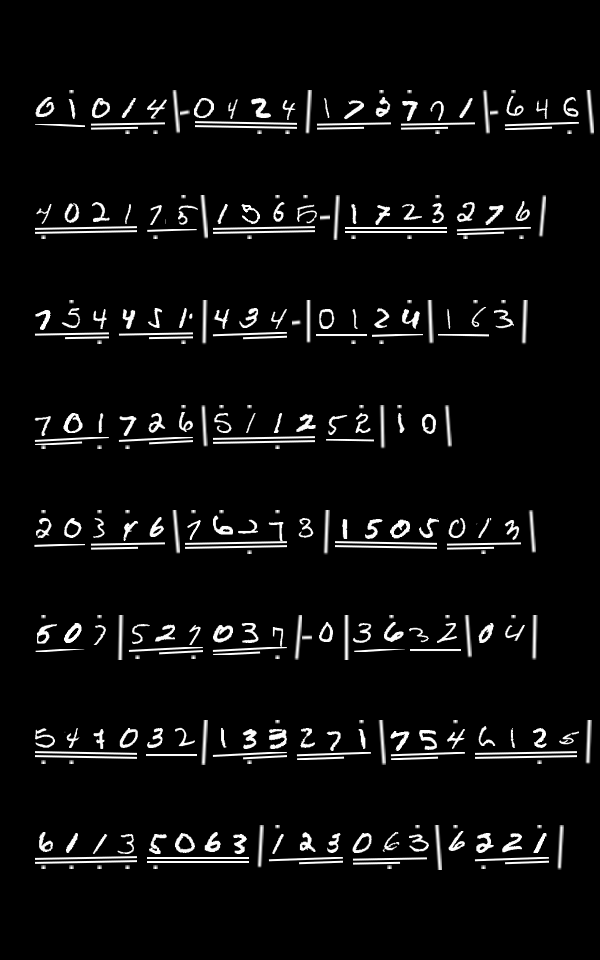 01 014|-0424|173771|-646|
402175|1565-|1723276|
754451|434-|0124|163|
701726|5112 52|10|
20346|76273|1505013|
507|527037|-0|3632|04|
547032|133271|7546125|
61135063|123063|6221|